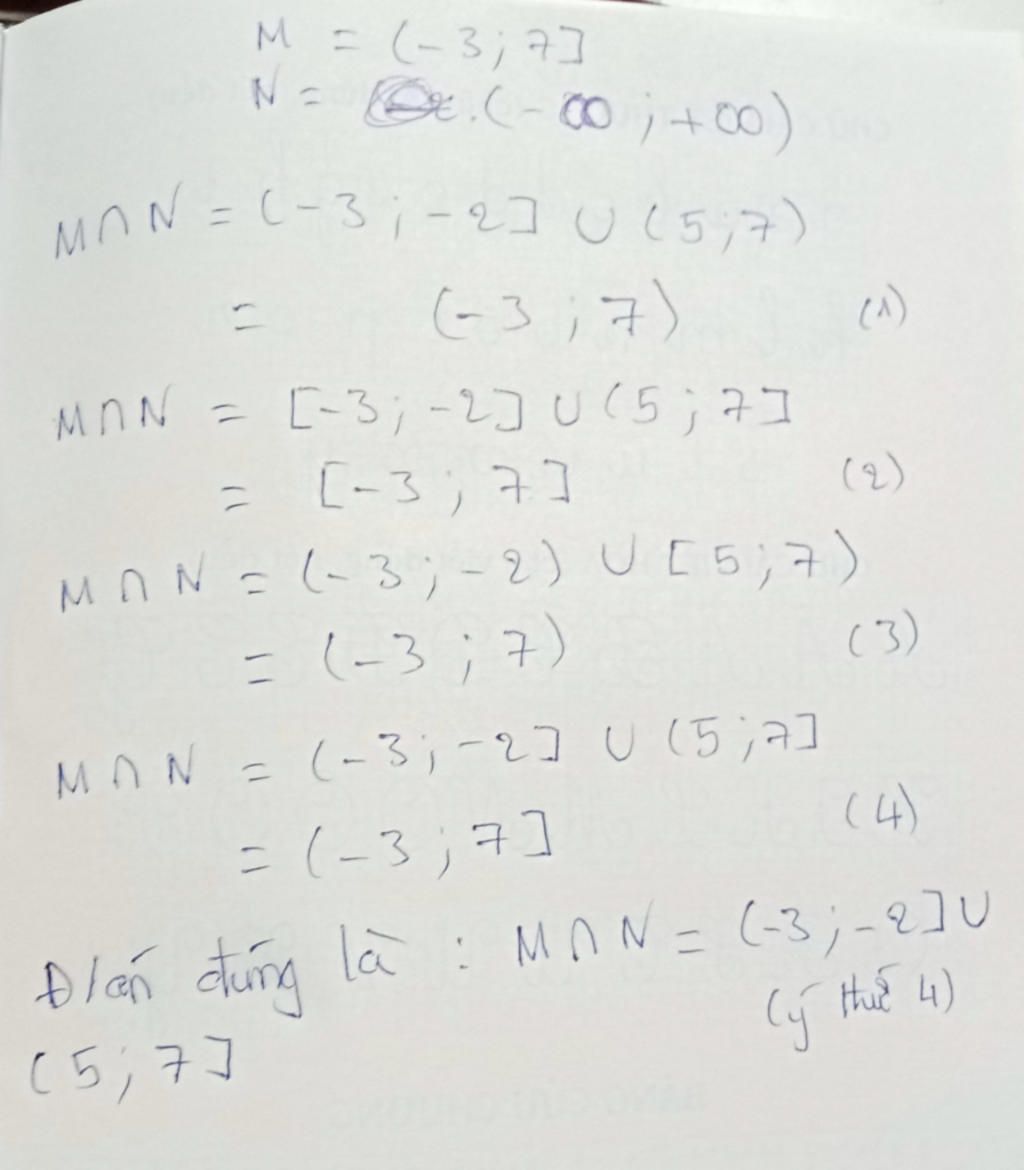 M = (-3; 7]
N = (-∞; +∞)
M∩N = (-3; -2] ∪ (5;7)
= (-3; 7) (1)
M∩N = [-3; -2] ∪ (5; 7]
= [-3; 7] (2)
M∩N = (-3; -2) ∪ [5; 7)
= (-3; 7) (3)
M∩N = (-3; -2] ∪ (5;7]
= (-3; 7] (4)
Đ/án đúng là : M∩N = (-3; -2] ∪
(ý thứ 4)
(5; 7]